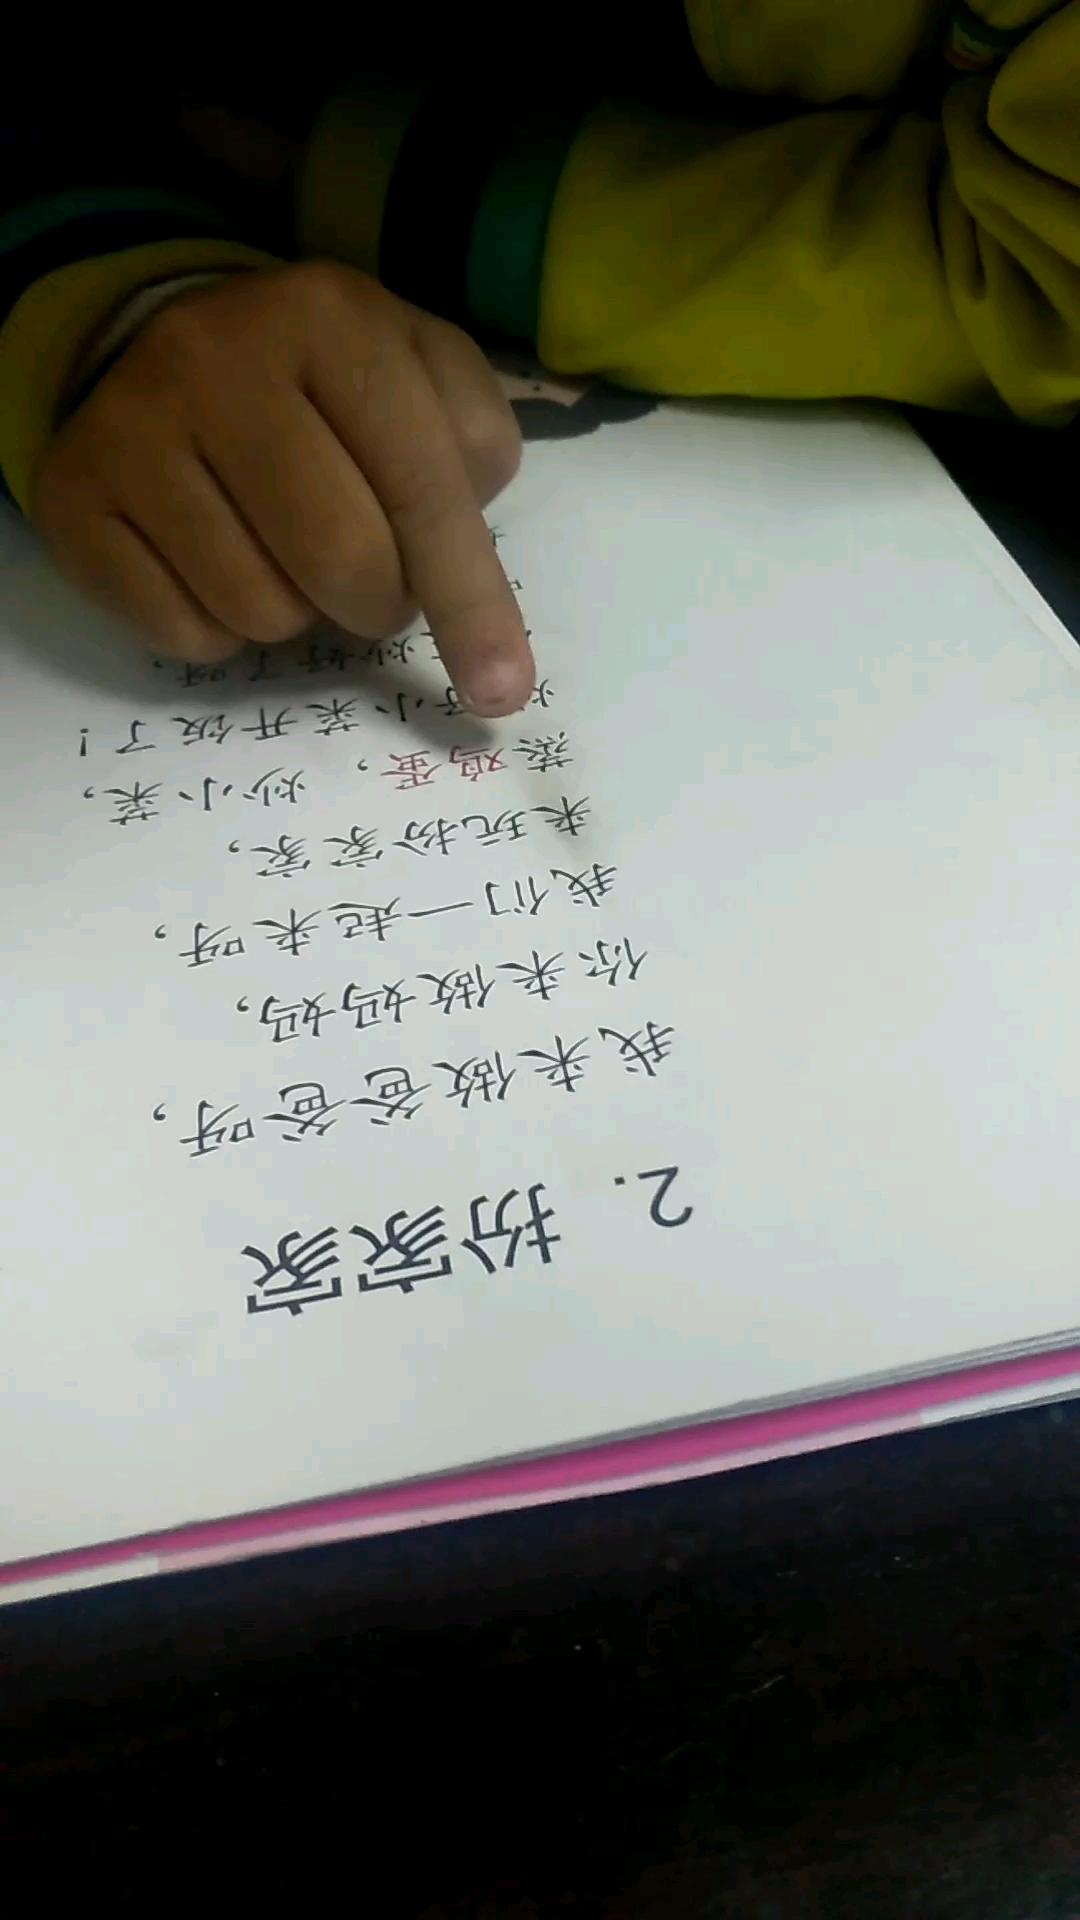 2. 扮家家
我来做爸爸呀，
你来做妈妈，
我们一起来呀，
来玩扮家家，
蒸鸡蛋， 炒小菜，
炒 小菜开饭了！
炒好了呀，